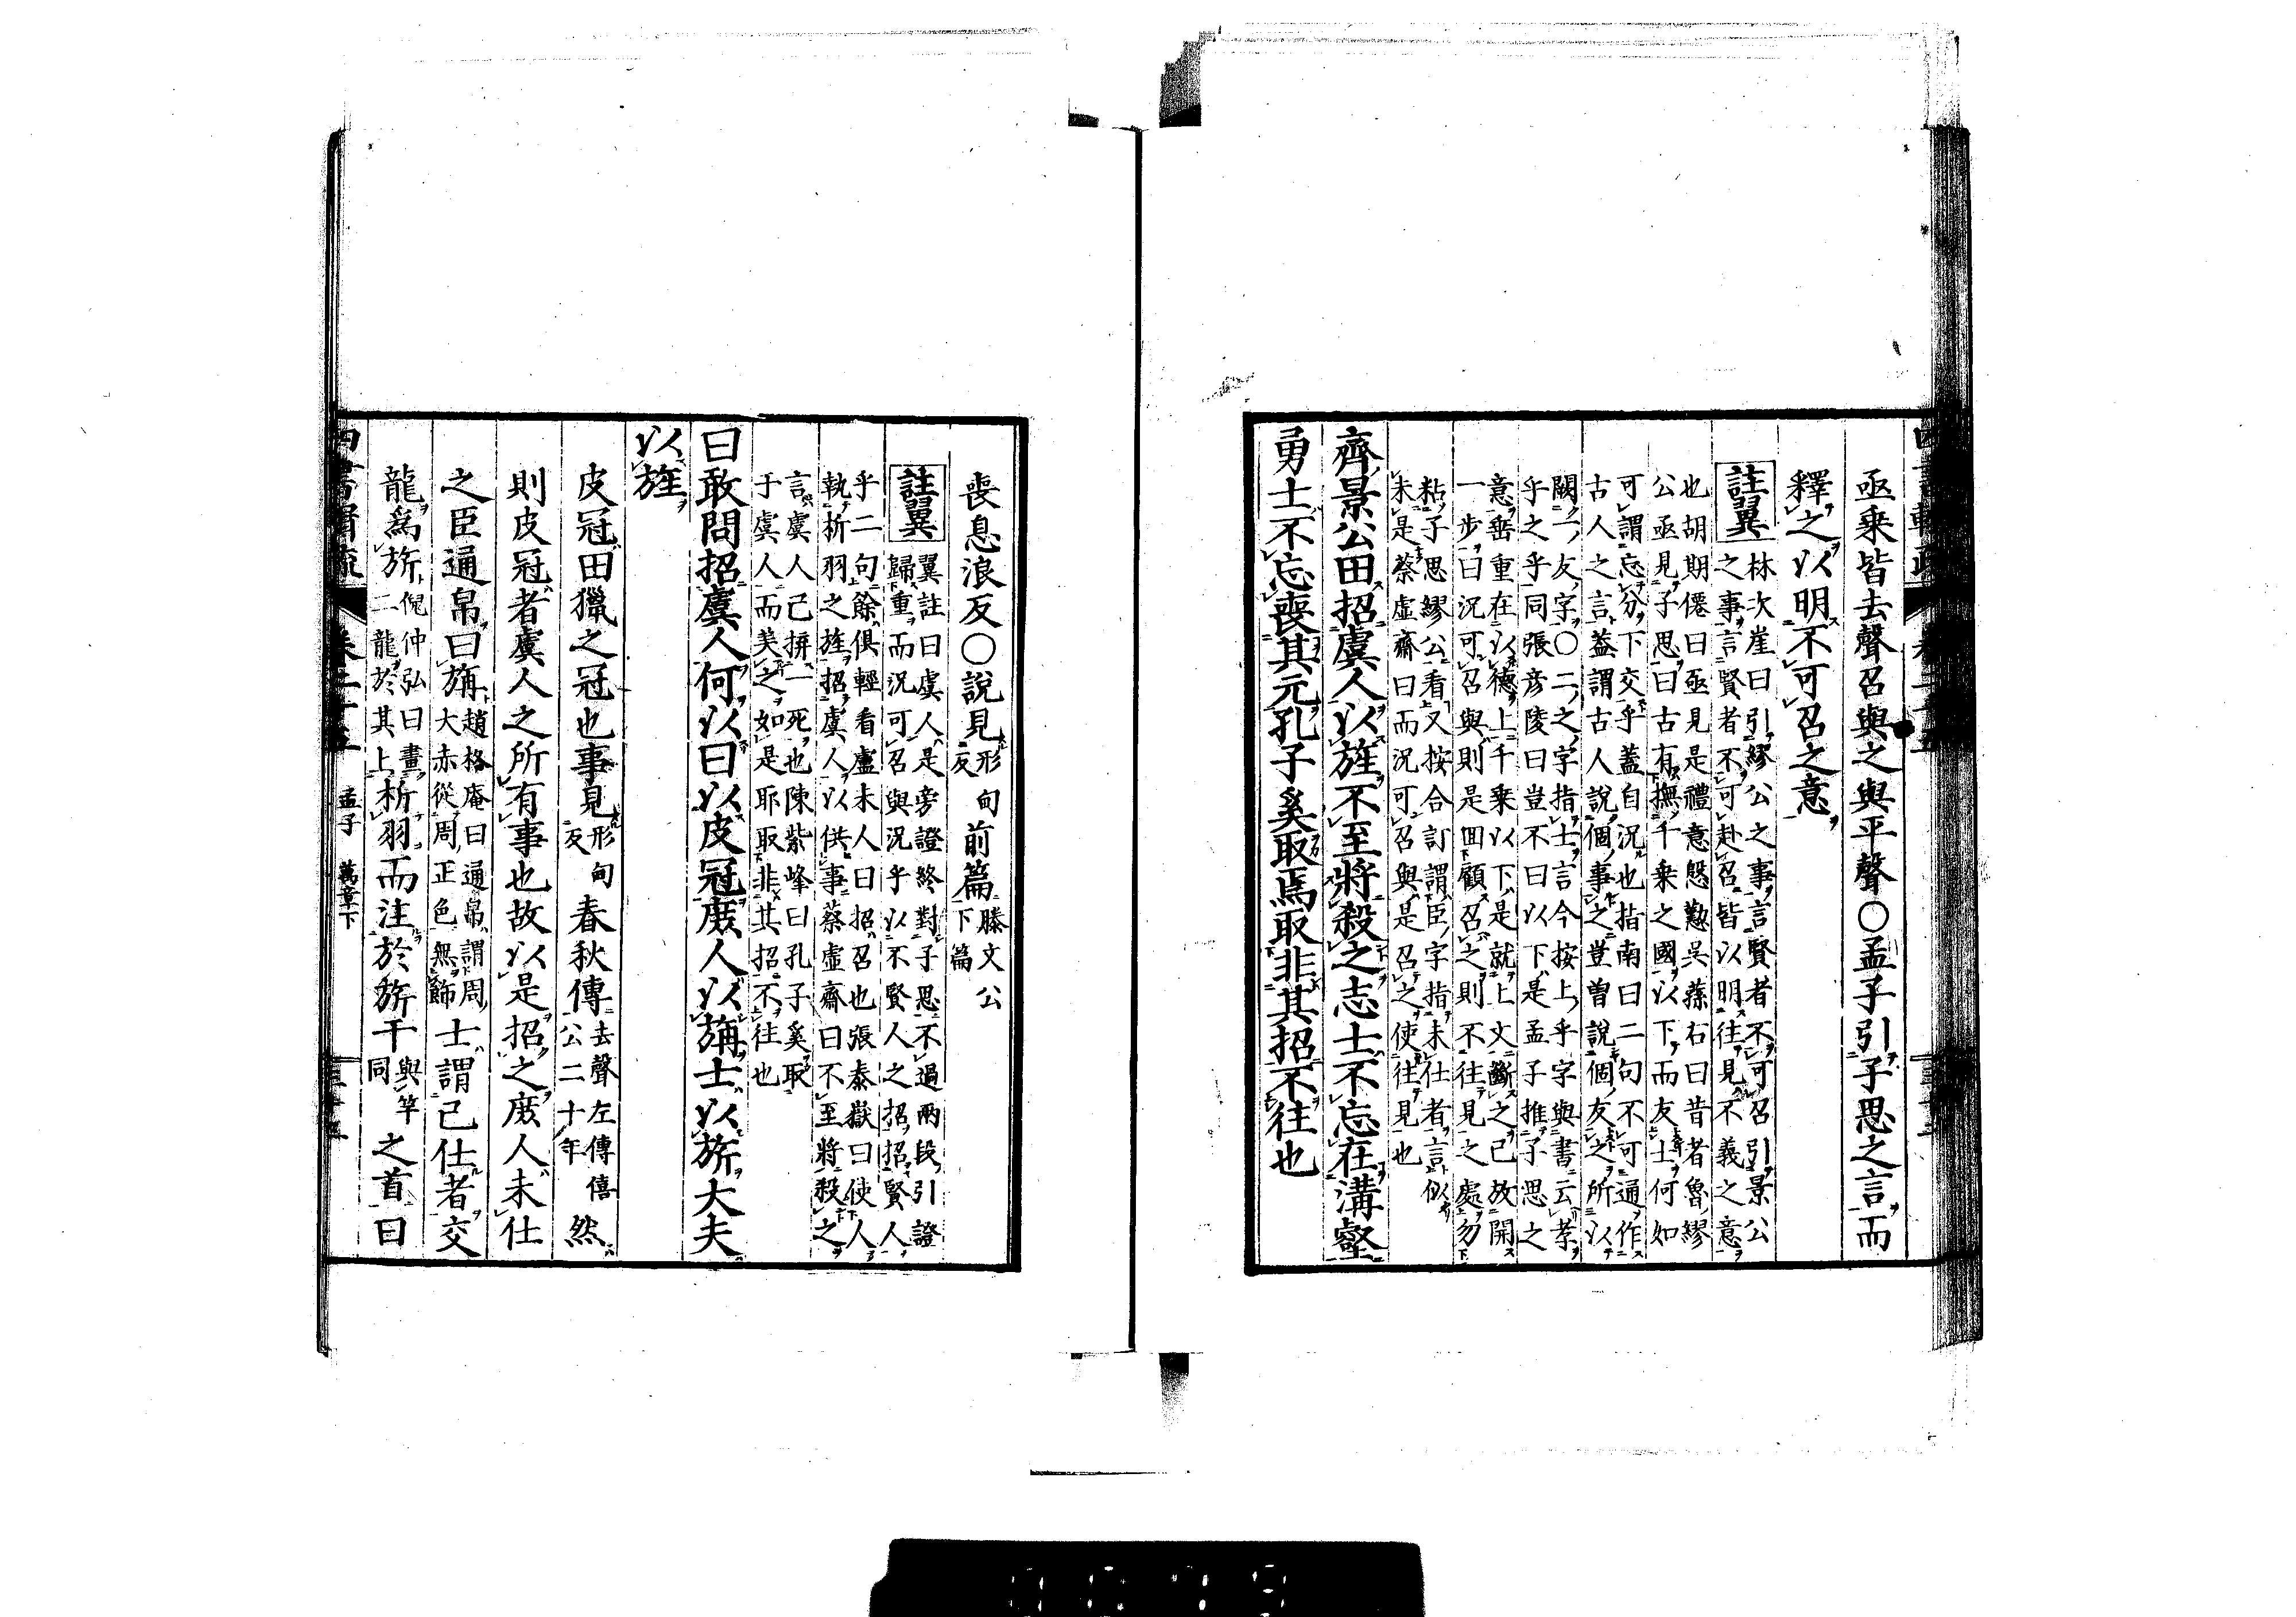 亟乗皆去聲召與之與平聲〇孟子引子思之言而
釋之以明不可召之意
註翼
林次崖曰引繆公之事言賢者不可召引景公
之事言賢者不可赴召皆以明往見不義之意
也胡期僊曰亟見是禮意慇懃呉蓀右曰昔者魯繆
公亟見子思曰古有撫千乗之國以下而友士何如
可謂忘分下交乎蓋自況也指南曰二句不可通作
古人之言蓋謂古人說個事之豈曽說個友之所以
闕一友字〇二之字指士言今按上乎字與書云孝
乎之乎同張彦陵曰豈不曰以下是孟子推子思之
意重在以德上千乗以下是就上文斷之已故開
一歩曰況可召與則是回顧召之則不往見之處勿
粘子思繆公看又按合訂謂臣字指未仕者言似
未是蔡虛齋曰而況可召與是召之使往見也
齊景公田招虞人以旌不至將殺之志士不忘在溝壑
勇士不忘喪其元孔子奚取焉取非其招不往也
喪息浪反〇說見形甸反前篇滕文公下篇
註翼
翼註曰虞人是旁證終對子思不過兩段引證
歸重而況可召與況乎以不賢人之招招賢人
乎二句餘俱輕看盧未人曰招召也張泰嶽曰使人
執析羽之旌招虞人以供事蔡虛齋曰不至將殺之
言虞人己拚一死也陳紫峰曰孔子奚取
于虞人而美之如是耶取非其招不往也
曰敢問招虞人何以曰以皮冠庶人以旃士以旂大夫
以旌
皮冠田獵之冠也事見形甸反春秋傳去聲左傳僖公二十年然
則皮冠者虞人之所有事也故以是招之庶人未仕
之臣通帛曰旃趙格庵曰通帛謂周大赤從周正色無飾士謂已仕者交
龍爲旂倪仲弘曰畫二龍於其上析羽而注於旂干與竿同之首曰
孟子 萬章下